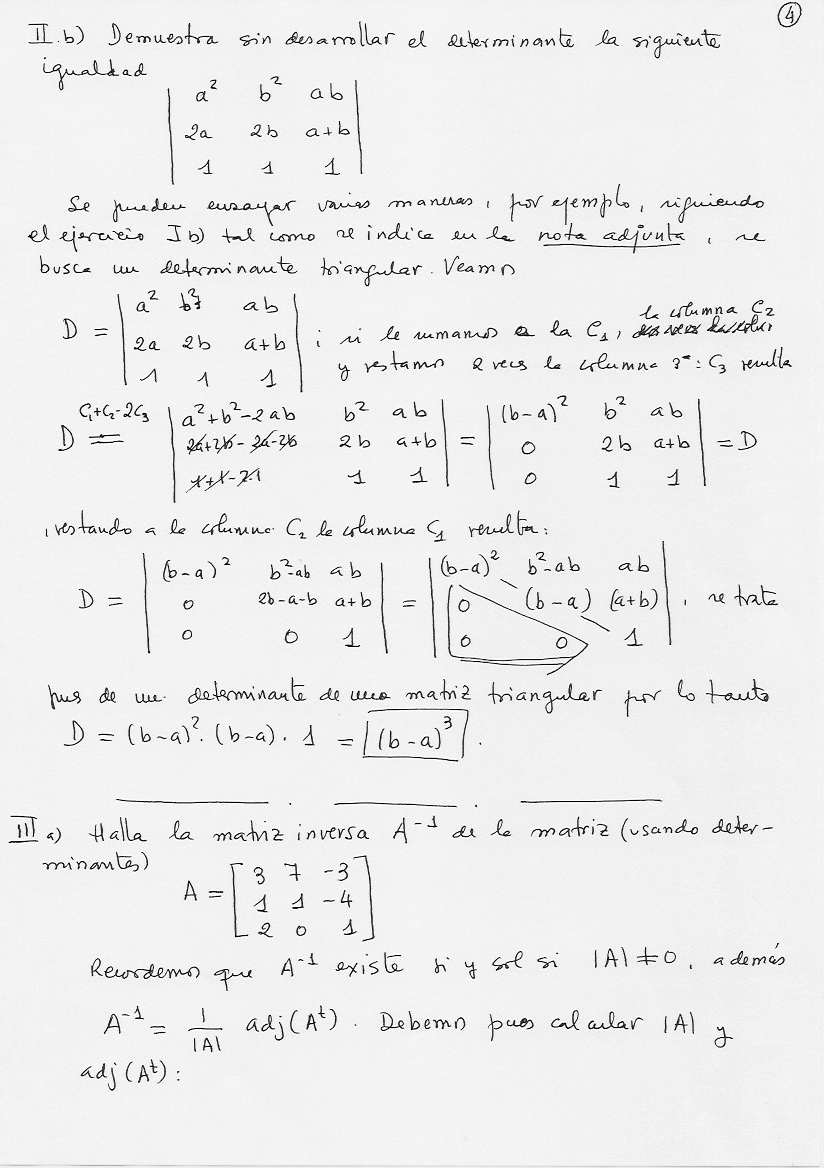 4
II.b) Demuestra sin desarrollar el determinante la siguiente
igualdad
| a² b² ab |
| 2a 2b a+b |
| 1 1 1 |
Se pueden ensayar varias maneras, por ejemplo, siguiendo
el ejercicio I b) tal como se indica en la nota adjunta, se
busca un determinante triangular. Veamos
D = | a² b² ab |
| 2a 2b a+b |
| 1 1 1 |
; si le sumamos a la C₁, la columna C₂
y restamos 2 veces la columna 3ª: C₃ resulta
D = (C₁+C₂-2C₃) | a²+b²-2ab b² ab | = | (b-a)² b² ab | = D
| 2a+2b-2a-2b 2b a+b | | 0 2b a+b |
| 1+1-2·1 1 1 | | 0 1 1 |
, restando a la columna C₂ la columna C₁ resulta:
D = | (b-a)² b²-ab ab | = | (b-a)² b²-ab ab | , se trata
| 0 2b-a-b a+b | | 0 (b-a) (a+b) |
| 0 0 1 | | 0 0 1 |
pues de un determinante de una matriz triangular por lo tanto
D = (b-a)².(b-a).1 = (b-a)³.
III a) Halla la matriz inversa A⁻¹ de la matriz (usando deter-
minantes)
A = [ 3 7 -3 ]
[ 1 1 -4 ]
[ 2 0 1 ]
Recordemos que A⁻¹ existe si y sol si |A| ≠ 0, además
A⁻¹ = 1/|A| adj(Aᵗ). Debemos pues calcular |A| y
adj(Aᵗ):